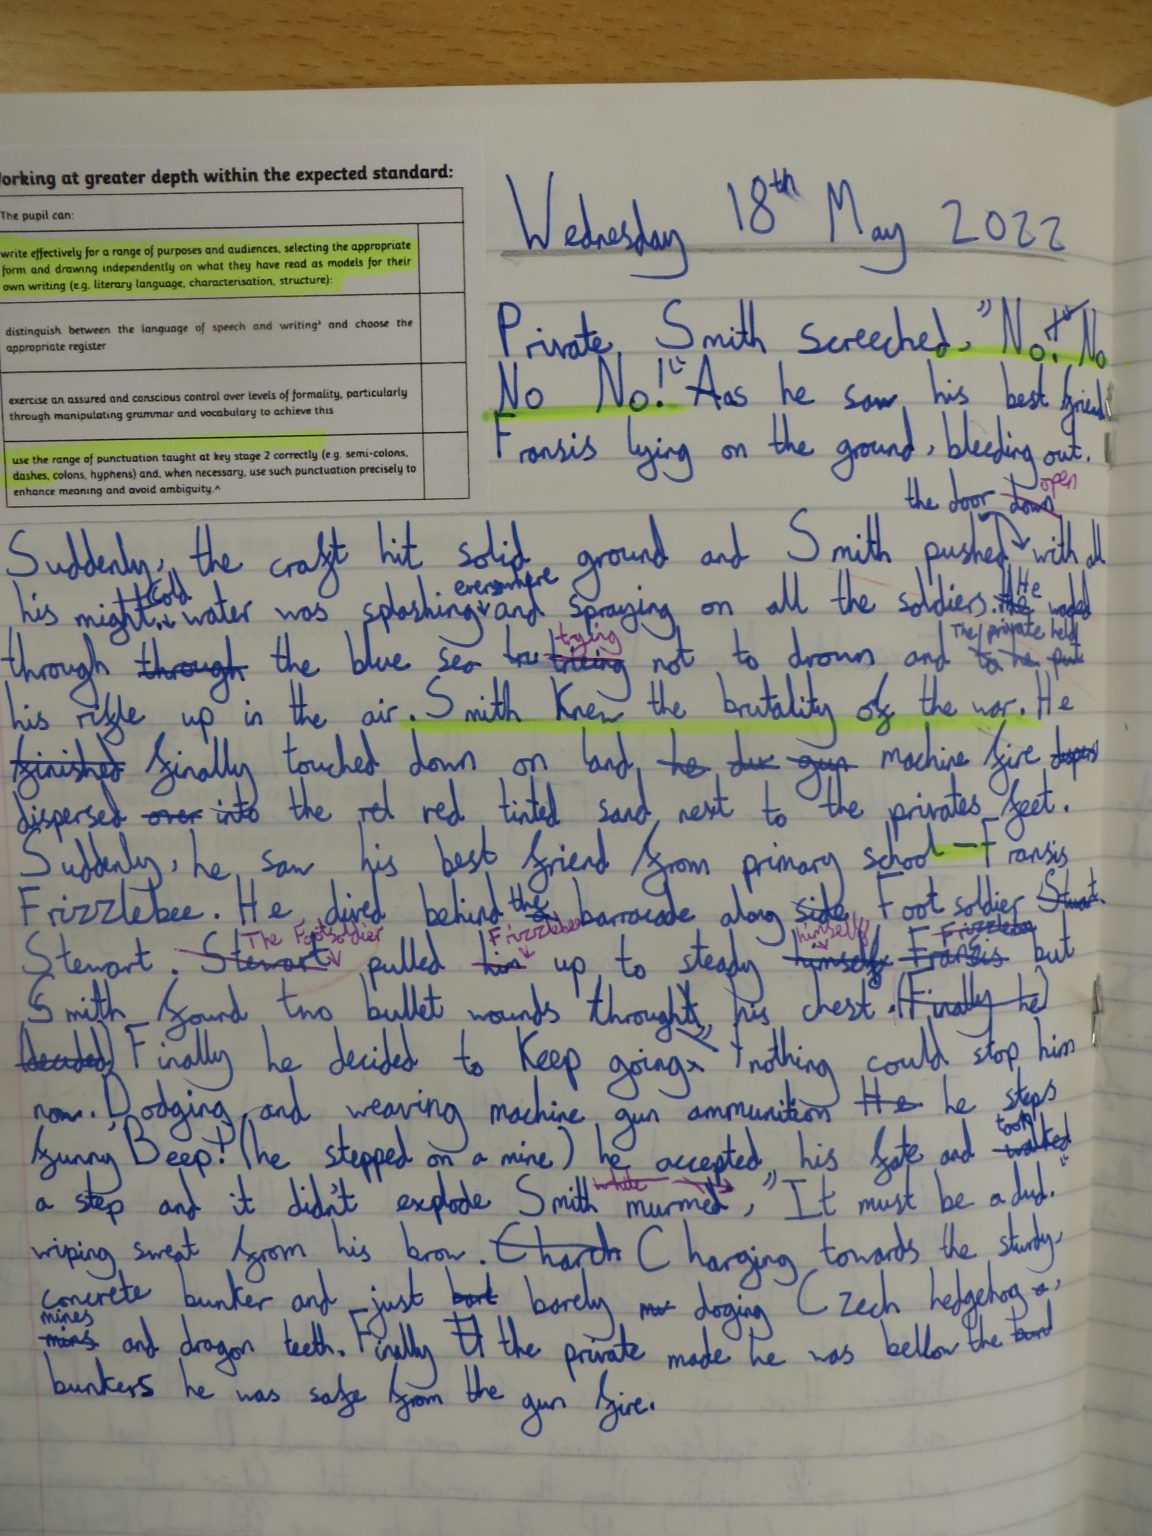 orking at greater depth within the expected standard:
The pupil can:
write effectively for a range of purposes and audiences, selecting the appropriate
form and drawing independently on what they have read as models for their
own writing (e.g. literary language, characterisation, structure):
distinguish between the language of speech and writing³ and choose the
appropriate register
exercise an assured and conscious control over levels of formality, particularly
through manipulating grammar and vocabulary to achieve this
use the range of punctuation taught at key stage 2 correctly (e.g. semi-colons,
dashes, colons, hyphens) and, when necessary, use such punctuation precisely to
enhance meaning and avoid ambiguity.^
Wednesday 18th May 2022
Private Smith screeched, "No! No
No No!" Aas he saw his best friend
Fransis lying on the ground, bleeding out.
the door down open
Suddenly, the craft hit solid ground and Smith pushed with all
his might. Cold water was splashing everywhere and spraying on all the soldiers. He waded
through through the blue sea trying not to drown and The private held
his rifle up in the air. Smith knew the brutality of the war. He
finished finally touched down on land he gun machine fire
dispersed over into the red red tinted sand next to the privates feet.
Suddenly, he saw his best friend from primary school - Fransis
Frizzlebee. He dived behind the barracade along side Foot soldier Stuart.
Stewart. Stewart The Footsoldier pulled him Frizzlebee up to steady himself himself Fransis Frizzlebee but
Smith found two bullet wounds throught his chest. (Finally he)
(decided) Finally he decided to keep going, nothing could stop him
now. Dodging and weaving machine gun ammunition He he steps
funny Beep! (he stepped on a mine) he accepted his fate and walked took
a step and it didn't explode Smith murmed, "It must be a dud." while
wiping sweat from his brow. Charch Charging towards the sturdy,
concrete bunker and just barely doging Czech hedgehog,
mines mins and dragon teeth. Finally the private made he was bellow the
bunkers he was safe from the gun fire.